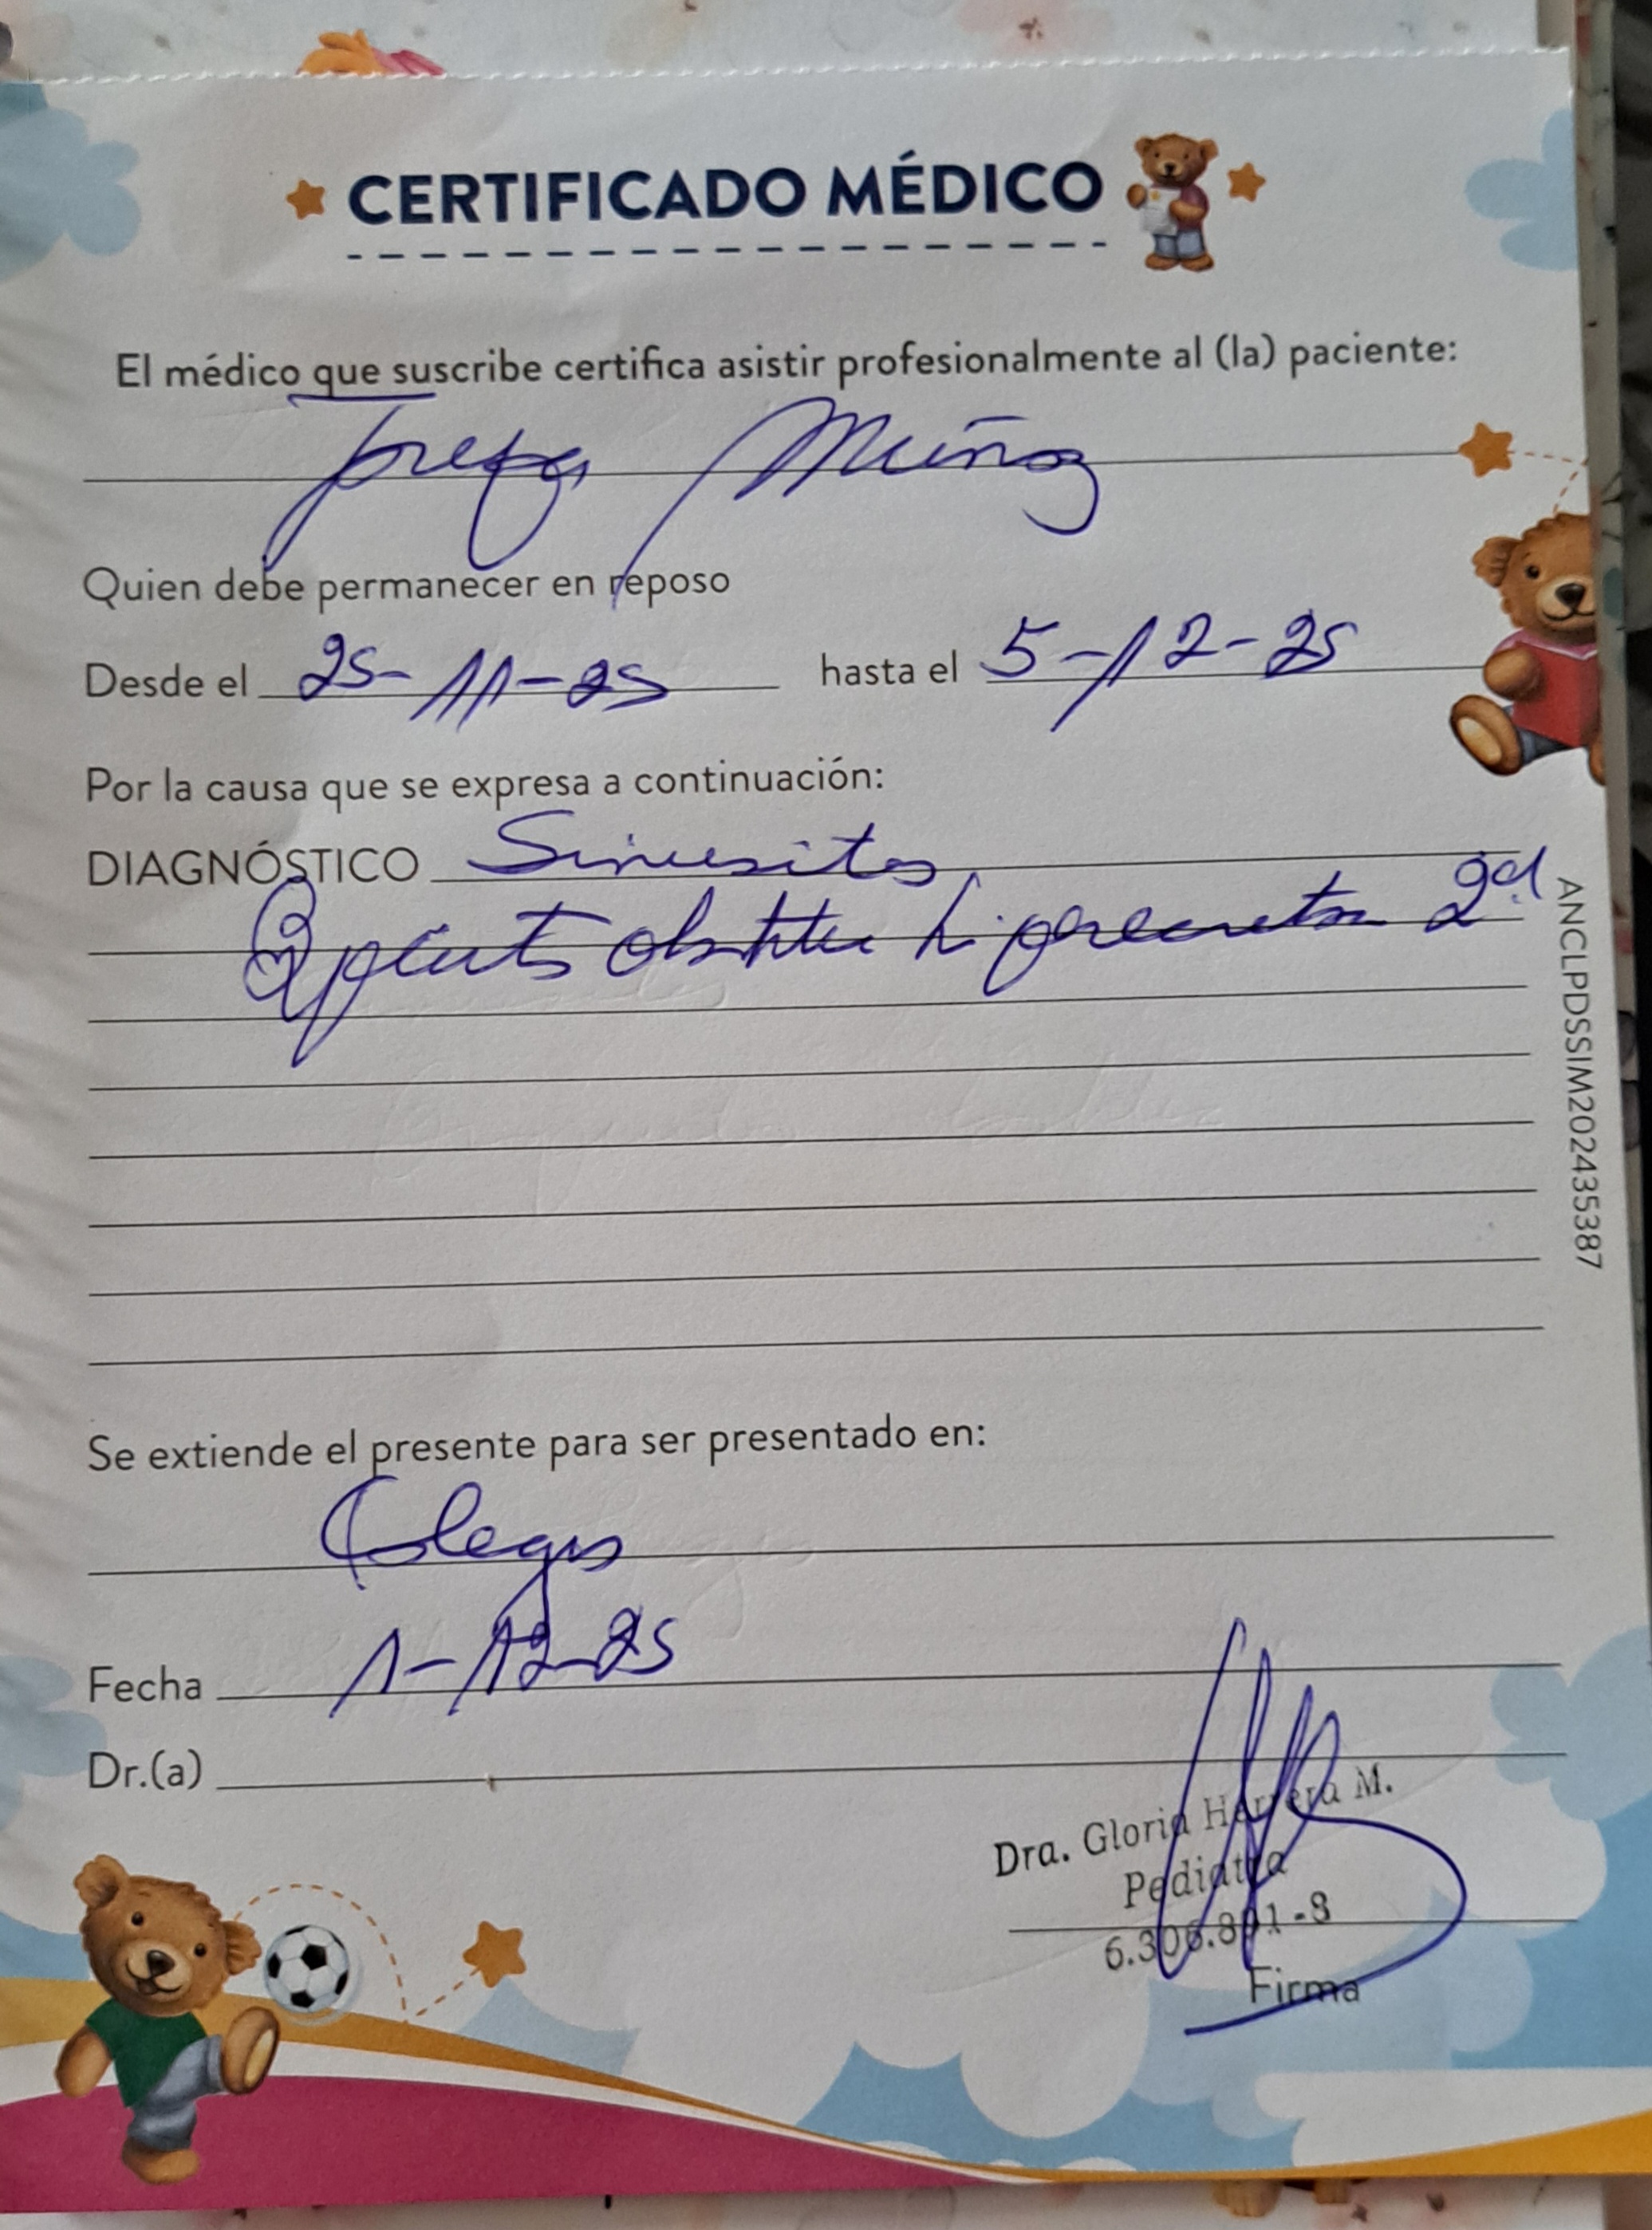 CERTIFICADO MÉDICO
El médico que suscribe certifica asistir profesionalmente al (la) paciente:
Josefa Muñoz
Quien debe permanecer en reposo
Desde el 25-11-25 hasta el 5-12-25
Por la causa que se expresa a continuación:
DIAGNÓSTICO Sinusitis
2d
Se extiende el presente para ser presentado en:
Colegio
Fecha 1-12-25
Dr.(a)
Dra. Gloria Herrera M.
Pediatra
6.306.891-8
Firma
ANCLPDSSIM202435387